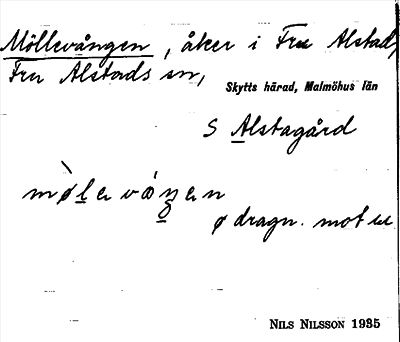 Möllevången, åker i Fru Alstad,
Fru Alstads sn,
Skytts härad, Malmöhus län
S Alstagård
mø̀leváŋen
ø dragn. mot
NILS NILSSON 1935